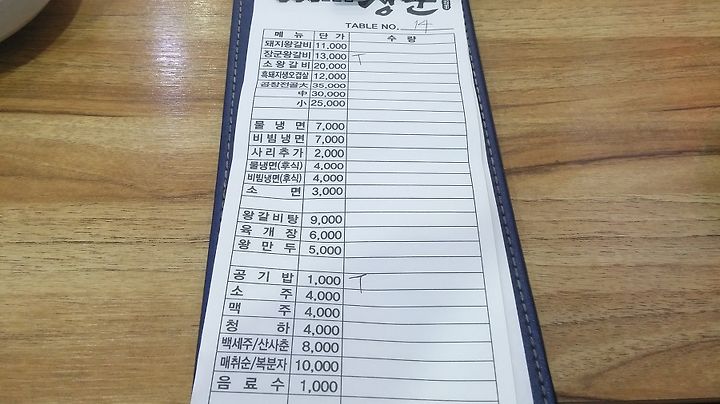 TABLE NO. 14
메뉴 단가 수량
돼지왕갈비 11,000
장군왕갈비 13,000 T
소왕갈비 20,000
흑돼지생오겹살 12,000
곱창전골大 35,000
中 30,000
小 25,000
물냉면 7,000
비빔냉면 7,000
사리추가 2,000
물냉면(후식) 4,000
비빔냉면(후식) 4,000
소면 3,000
왕갈비탕 9,000
육개장 6,000
왕만두 5,000
공기밥 1,000 T
소주 4,000
맥주 4,000
청하 4,000
백세주/산사춘 8,000
매취순/복분자 10,000
음료수 1,000